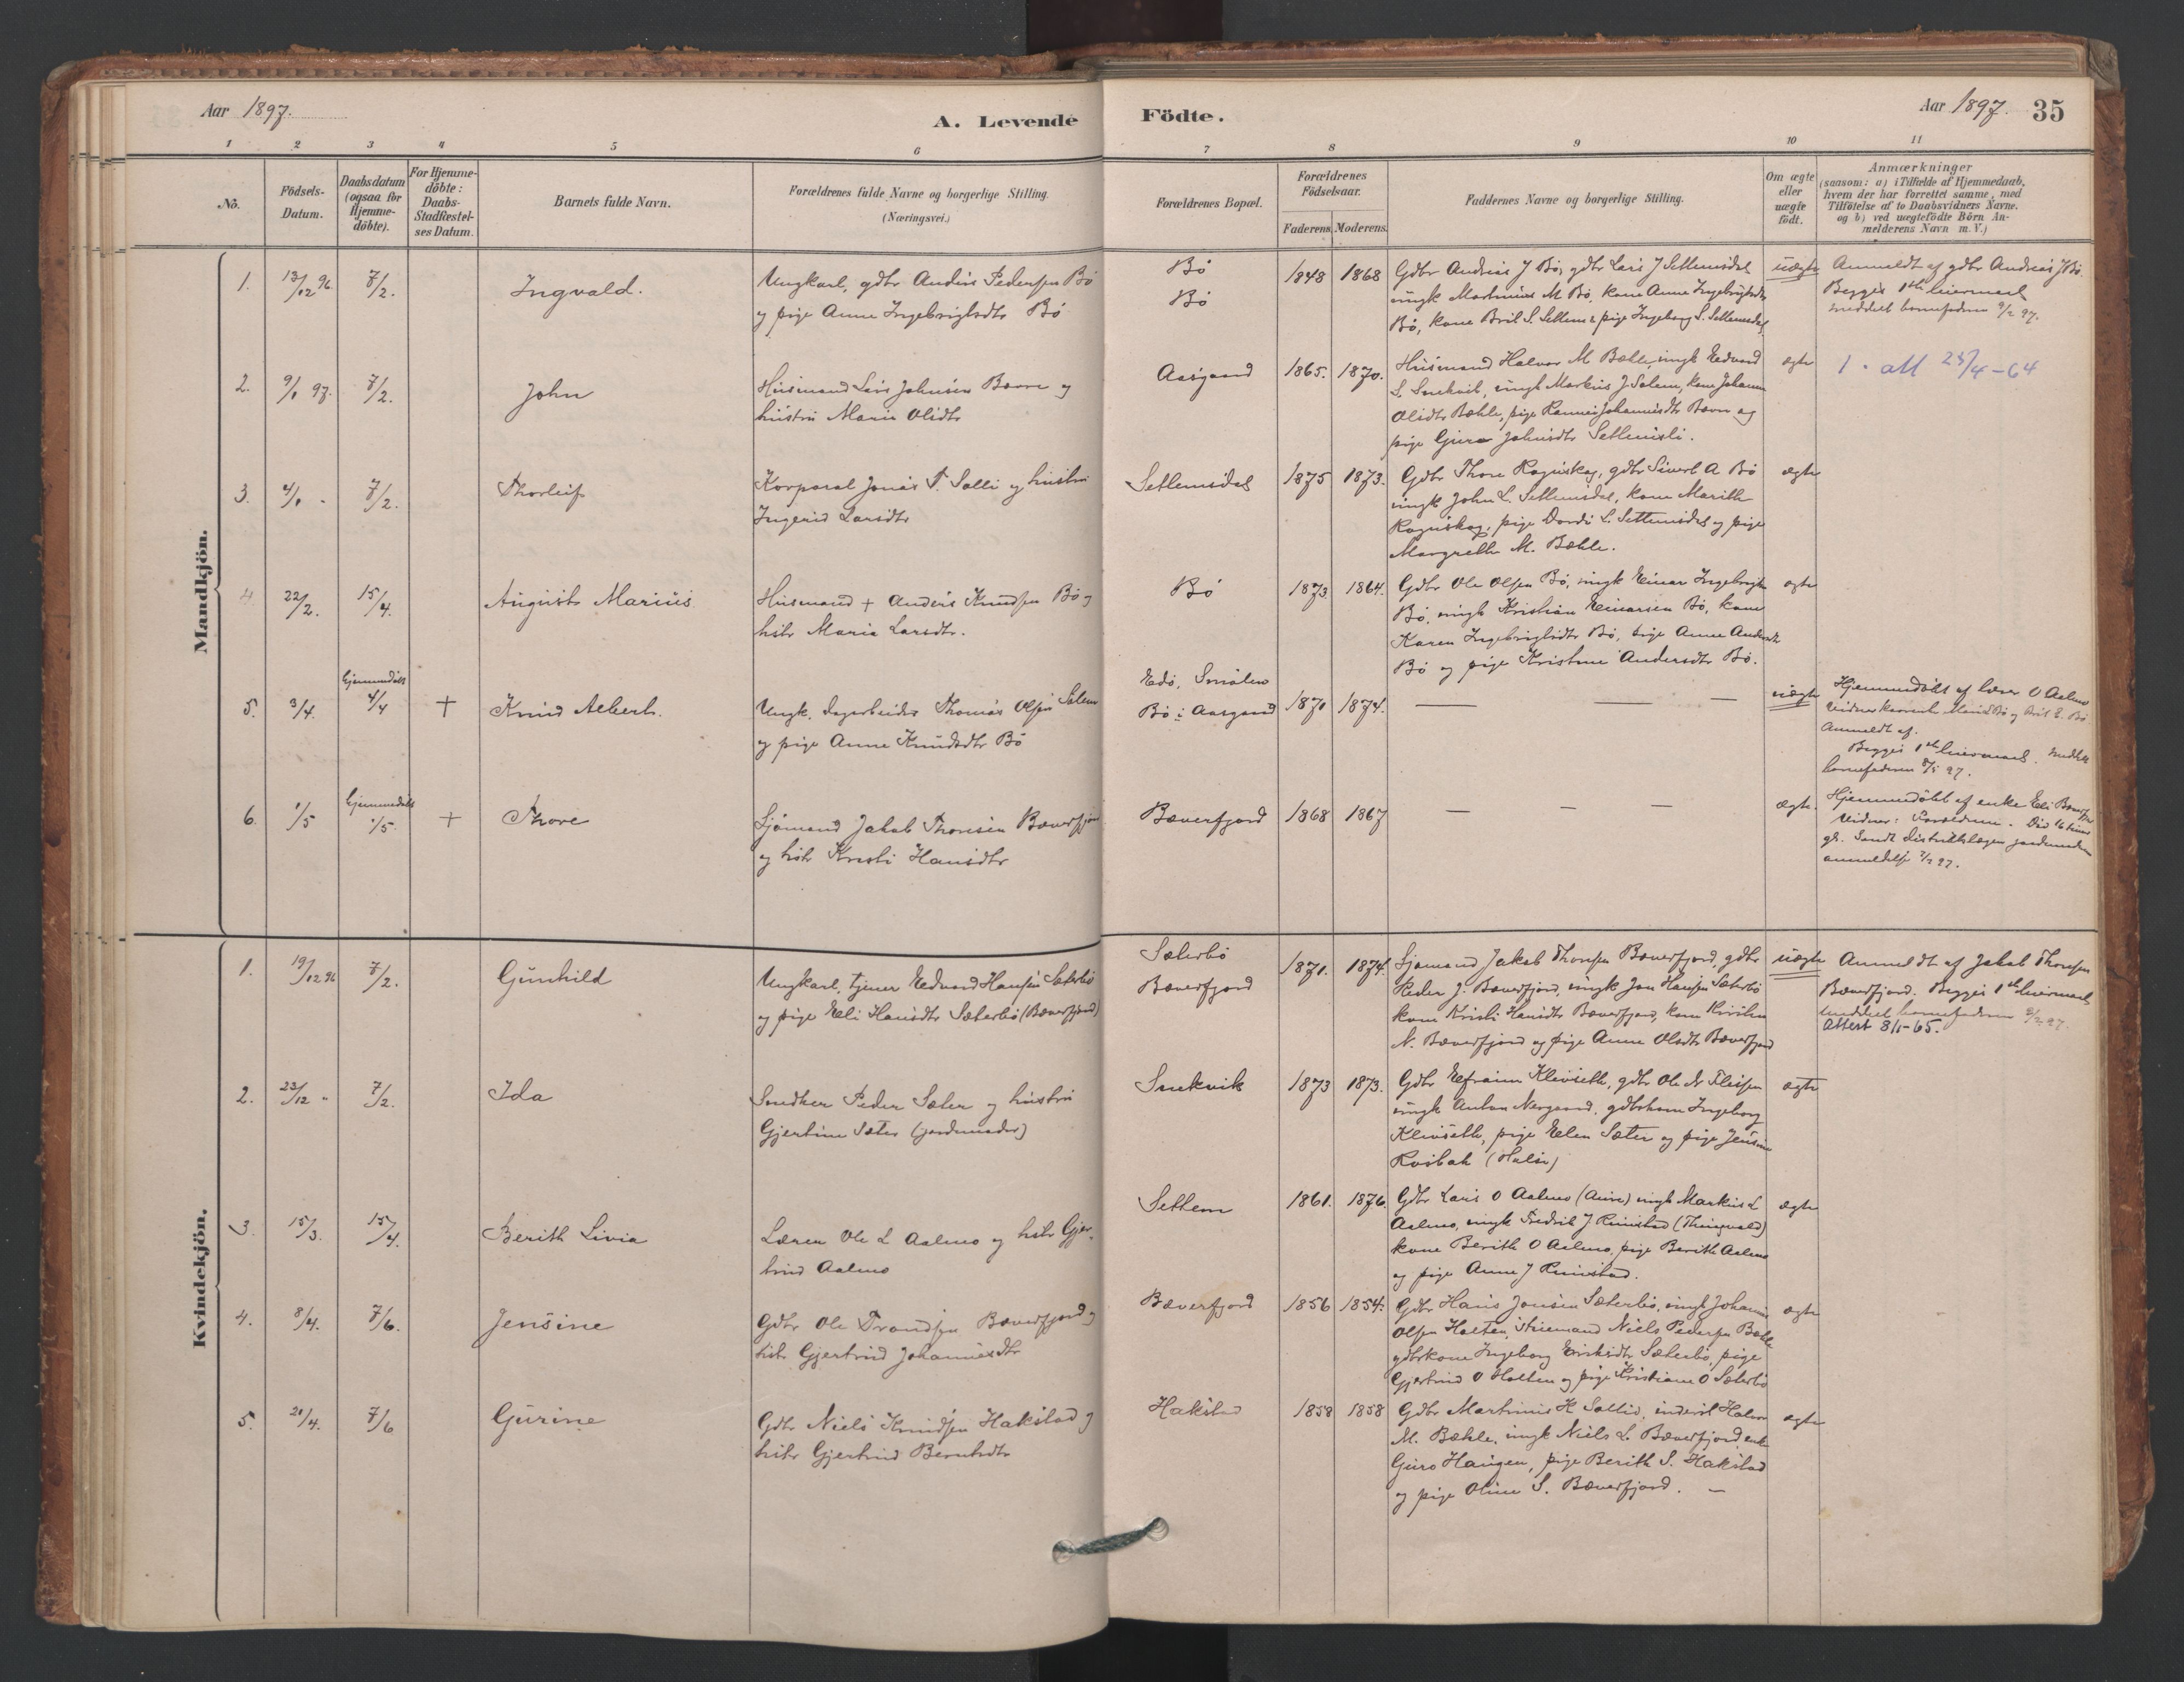 Aar 1897.
A. Levende
Födte.
Aar 1897.
35
1
2
3
4
5
6
7
8
9
10
11
No.
Födsels-
Datum.
Daabsdatum
(ogsaa for
Hjemme-
döbte).
For Hjemme-
döbte:
Daabs-
Stadfæstel-
ses Datum.
Barnets fulde Navn.
Forældrenes fulde Navne og borgerlige Stilling.
(Næringsvei.)
Forældrenes Bopæl.
Forældrenes
Födselsaar.
Faderens.
Moderens.
Faddernes Navne og borgerlige Stilling.
Om ægte
eller
uægte
födt.
Anmærkninger
(saasom: a) i Tilfælde af Hjemmedaab,
hvem der har forrettet samme, med
Tilföielse af to Daabsvidners Navne.
og b) ved uægtefödte Börn An-
melderens Navn m. V.)
Mandkjön.
1.
13/12 96.
7/2.
Ingvald.
Ungkarl, gdbr Anders Pedersen Bö
og pige Anne Ingebrigtsdtr Bö
Bö
Bö
1848
1868
Gdbr Andreas J Bö, gdbr Lars J Settemsdal
ungk Martinus M Bö, kone Anne Ingebrigtsdtr
Bö, kone Brit S. Settem & pige Ingeborg S. Settemsdal
uægte
Anmeldt af gdbr Andreas J Bö.
Begges 1ste leiermaal
meddelt barnefaderen 9/2 97.
2.
9/1 97.
7/2.
John
Husmand Lars Johnsen Bævre og
hustru Marie Olsdtr
Aasgaard
1865.
1870.
Husmand Halvor M Bæhle, ungk Edvard
S. Snekvik, ungk Markus J Salem, kone Johanna
Olsdtr Bæhle, pige Johannesdtr Bævre og
pige Guro Johnsdtr Settemsli.
ægte
1. att 23/4-64
3.
4/1 -
7/2.
Thorleif
Korporal Jonas T. Solli og hustru
Ingerid Larsdtr
Settemsdal
1875
1873.
Gdbr Thore Rognskog, gdbr Sivert A Bö
ungk John L. Settemsdal, kone Marith
Rognskog, pige Dordi L. Settemsdal og pige
Margrethe M. Bæhle.
ægte
4
22/2.
15/4.
August Marius
Husmand + Anders Knudsen Bö og
hstr Maria Larsdtr.
Bö
1873.
1864.
Gdbr Ole Olsen Bö, ungk Einar Ingebrigtsen
Bö, ungk Kristian Einarsen Bö, kone
Karen Ingebrigtsdtr Bö, pige Anne Andersdtr
Bö og pige Kristine Andersdtr Bö.
ægte
5.
3/4.
hjemmedöbt
4/4
+
Knud Albert.
Ungk. dagarbeider Thomas Olsen Salen
og pige Anne Knudsdtr Bö
Edö, Smölen
Bö i Aasgaard
1870
1874.
— — —
uægte
Hjemmedöbt af lærer O Aalmo
Vidner Marit Bö og Brit E. Bö
Anmeldt af.
Begges 1ste leiermaal. meddelt
barnefaderen 8/5 97.
6.
1/5
hjemmedöbt
1/5.
+
Thore
Sjömand Jakob Thoresen Bæverfjord
og hstr Kristi Hansdtr
Bæverfjord
1868
1867
— — —
ægte.
Hjemmedöbt af enke Eli Bæverfjord
Vidner: Forældrene. Död 16 timer
gl. Sendt distriktslægen jordmoderens
anmeldelse 7/5 97.
Kvindekjön.
1.
19/12 96
7/2.
Gunhild
Ungkarl, tjener Edvard Hansen Sæterbö
og pige Eli Hansdtr Sæterbö (Bæverfjord)
Sæterbö
Bæverfjord
1871.
1874.
Sjömand Jakob Thoresen Bæverfjord, gdbr
Peder J. Bæverfjord, ungk Jon Hansen Sæterbö
kone Kristi Hansdtr Bæverfjord, kone
N. Bæverfjord og pige Anne Olsdtr Bæverfjord
uægte
Anmeldt af Jakob Thoresen
Bæverfjord. Begges 1ste leiermaal
meddelt barnefaderen 9/2 97.
Attest 8/1-65.
2.
23/12 "
7/2.
Ida
Snedker Peder Sæter og hustru
Gjertine Sæter (jordemoder)
Snekvik
1873
1873.
Gdbr Efraim Klevseth, gdbr Ole N
ungk Anton Nergaard, gdbrkone Ingeborg
Klevseth, pige Elen Sæter og pige Jensine
(Halse)
ægte
3.
15/3.
15/4.
Berith Livia
Lærer Ole L Aalmo og hstr Gjer-
trud Aalmo
Settem
1861.
1876.
Gdbr Lars O Aalmo (Aure) ungk Markus L
Aalmo, ungk Fredrik J Rimstad (Thingvold)
kone Berith O Aalmo, pige Berith Aalmo
og pige Anne J Rimstad.
ægte
4.
8/4.
7/6.
Jensine
Gdbr Ole Trondsen Bæverfjord og
hstr Gjertrud Johannesdtr
Bæverfjord
1856
1854.
Gdbr Hans Jonsen Sæterbö, ungk Johannes
Olsen Holten, Niels Pedersen Bæhle
gdbrkone Ingeborg Eriksdtr Sæterbö, pige
Gjertrud O Holten og pige Kristiane O Sæterbö
ægte
5.
20/4.
7/6
Gurine
Gdbr Niels Knudsen Hakstad og
hstr Gjertrud Berntsdtr
Hakstad
1858
1858
Gdbr Martinus H Sollid, inderst Halvor
M. Bæhle, ungk Niels L. Bæverfjord, enke
Guro Haugen, pige Berith S. Hakstad
og pige Oline S. Bæverfjord. —
ægte